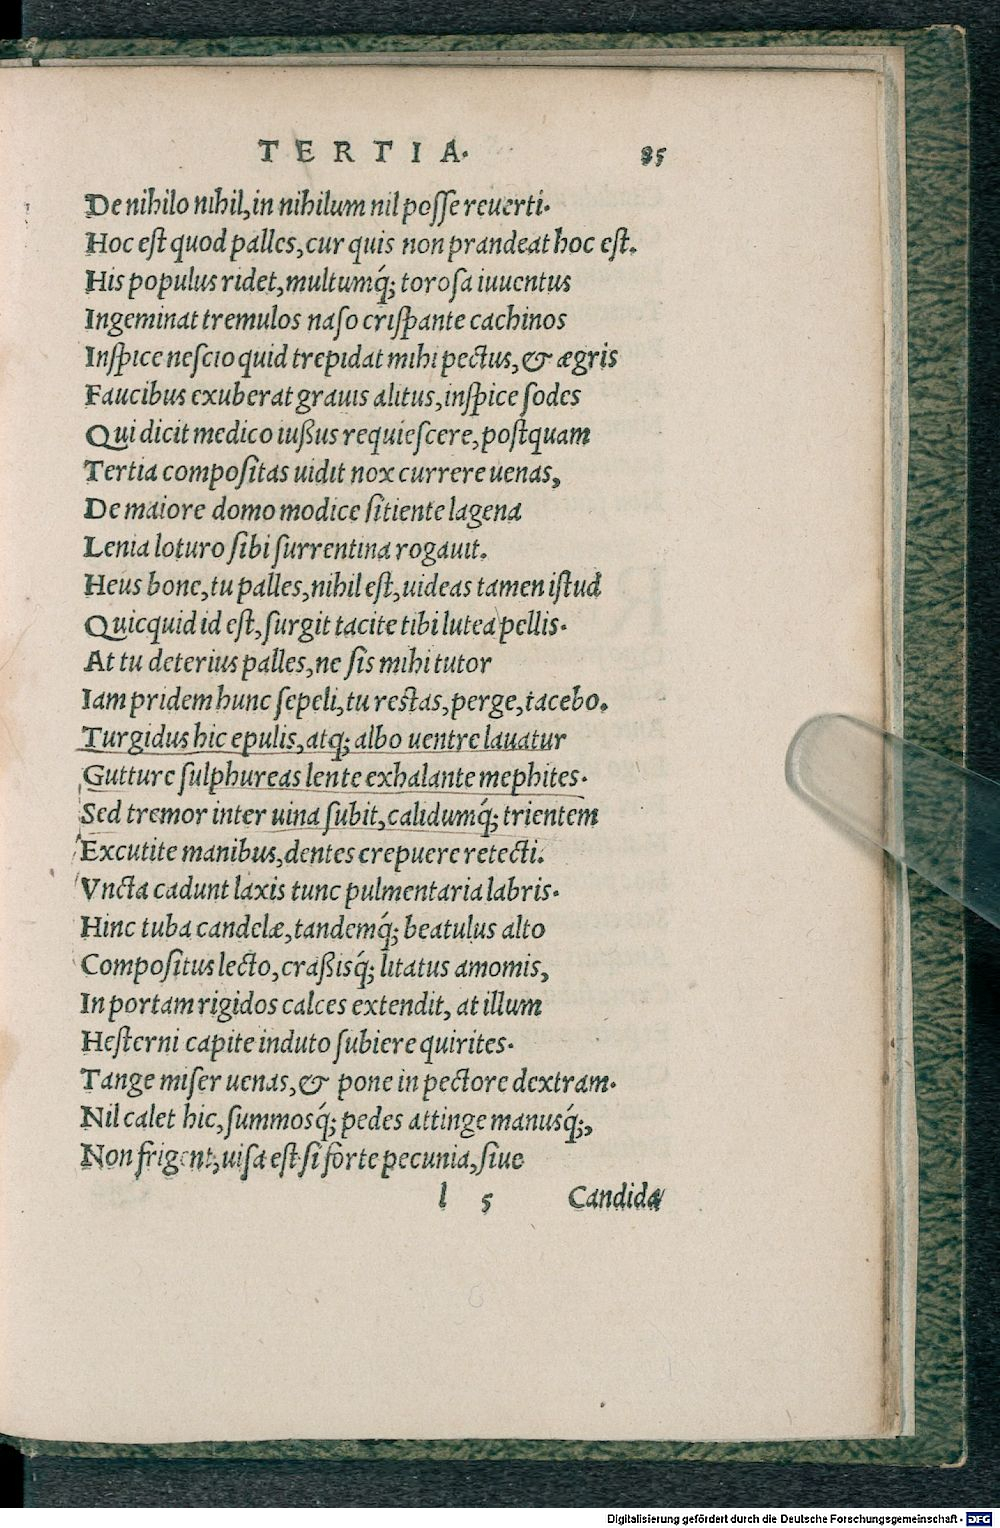 TERTIA. 85
De nihilo nihil, in nihilum nil posse reuerti.
Hoc est quod palles, cur quis non prandeat hoc est.
His populus ridet, multumq́; torosa iuuentus
Ingeminat tremulos naso crispante cachinos
Inspice nescio quid trepidat mihi pectus, & ægris
Faucibus exuberat grauis alitus, inspice sodes
Qui dicit medico iußus requiescere, postquam
Tertia compositas uidit nox currere uenas,
De maiore domo modice sitiente lagena
Lenia loturo sibi surrentina rogauit.
Heus bone, tu palles, nihil est, uideas tamen istud
Quicquid id est, surgit tacite tibi lutea pellis.
At tu deterius palles, ne sis mihi tutor
Iam pridem hunc sepeli, tu restas, perge, tacebo.
Turgidus hic epulis, atq; albo uentre lauatur
Gutture sulphureas lente exhalante mephites.
Sed tremor inter uina subit, calidumq́; trientem
Excutite manibus, dentes crepuere retecti.
Vncta cadunt laxis tunc pulmentaria labris.
Hinc tuba candelæ, tandemq́; beatulus alto
Compositus lecto, craßisq́; litatus amomis,
In portam rigidos calces extendit, at illum
Hesterni capite induto subiere quirites.
Tange miser uenas, & pone in pectore dextram.
Nil calet hic, summosq́; pedes attinge manusq́;,
Non frigent, uisa est si forte pecunia, siue
l 5 Candida
Digitalisierung gefördert durch die Deutsche Forschungsgemeinschaft - DFG